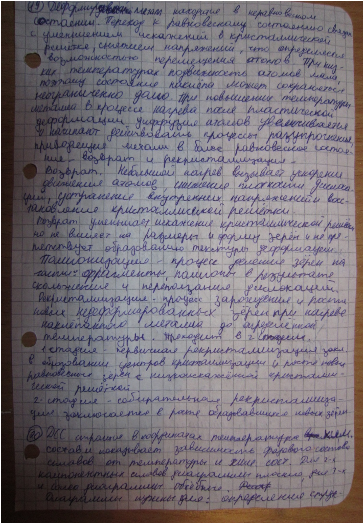 19) Деформированный металл находится в неравновесном
состоянии. Переход к равновесному состоянию связан
с уменьшением искажений в кристаллической
решетке, снятием напряжений, что определяется
возможностью перемещения атомов. При низ
ких температурах подвижность атомов мала,
поэтому состояние наклепа может сохраняться
неограниченно долго. При повышении температуры
металла в процессе нагрева после пластической
деформации диффузия атомов увеличивается
и начинают действовать процессы разупрочнения,
приводящие металл в более равновесное состоя
ние - возврат и рекристаллизация.
Возврат. Небольшой нагрев вызывает ускорение
движения атомов, снижение плотности дислока
ций, устранение внутренних напряжений и вос-
становление кристаллической решетки.
Возврат уменьшает искажение кристаллической решетки
но не влияет на размеры и форму зерен и не пре-
пятствует образованию текстуры деформации.
Полигонизация - процесс деления зерен на
части: фрагменты, полигоны в результате
скольжения и переползания дислокаций.
Рекристаллизация - процесс зарождения и роста
новых недеформированных зерен при нагреве
наклепанного металла до определенной
температуры, протекает в 2 стадии.
1 стадия - первичная рекристаллизация закл.
в образовании центров кристаллизации и росте новых
равновесных зерен с неискаженной кристалли-
ческой решеткой.
2 стадия - собирательная рекристаллиза-
ция заключается в росте образовавшихся новых зерен
20) ДСС строится в координатах температура
состав и показывает зависимость фазового состава
сплавов от температуры и хим. сост. Для 2-х
компонентных сплавов диаграммы плоские, для 3-х
и более диаграммы объемные.